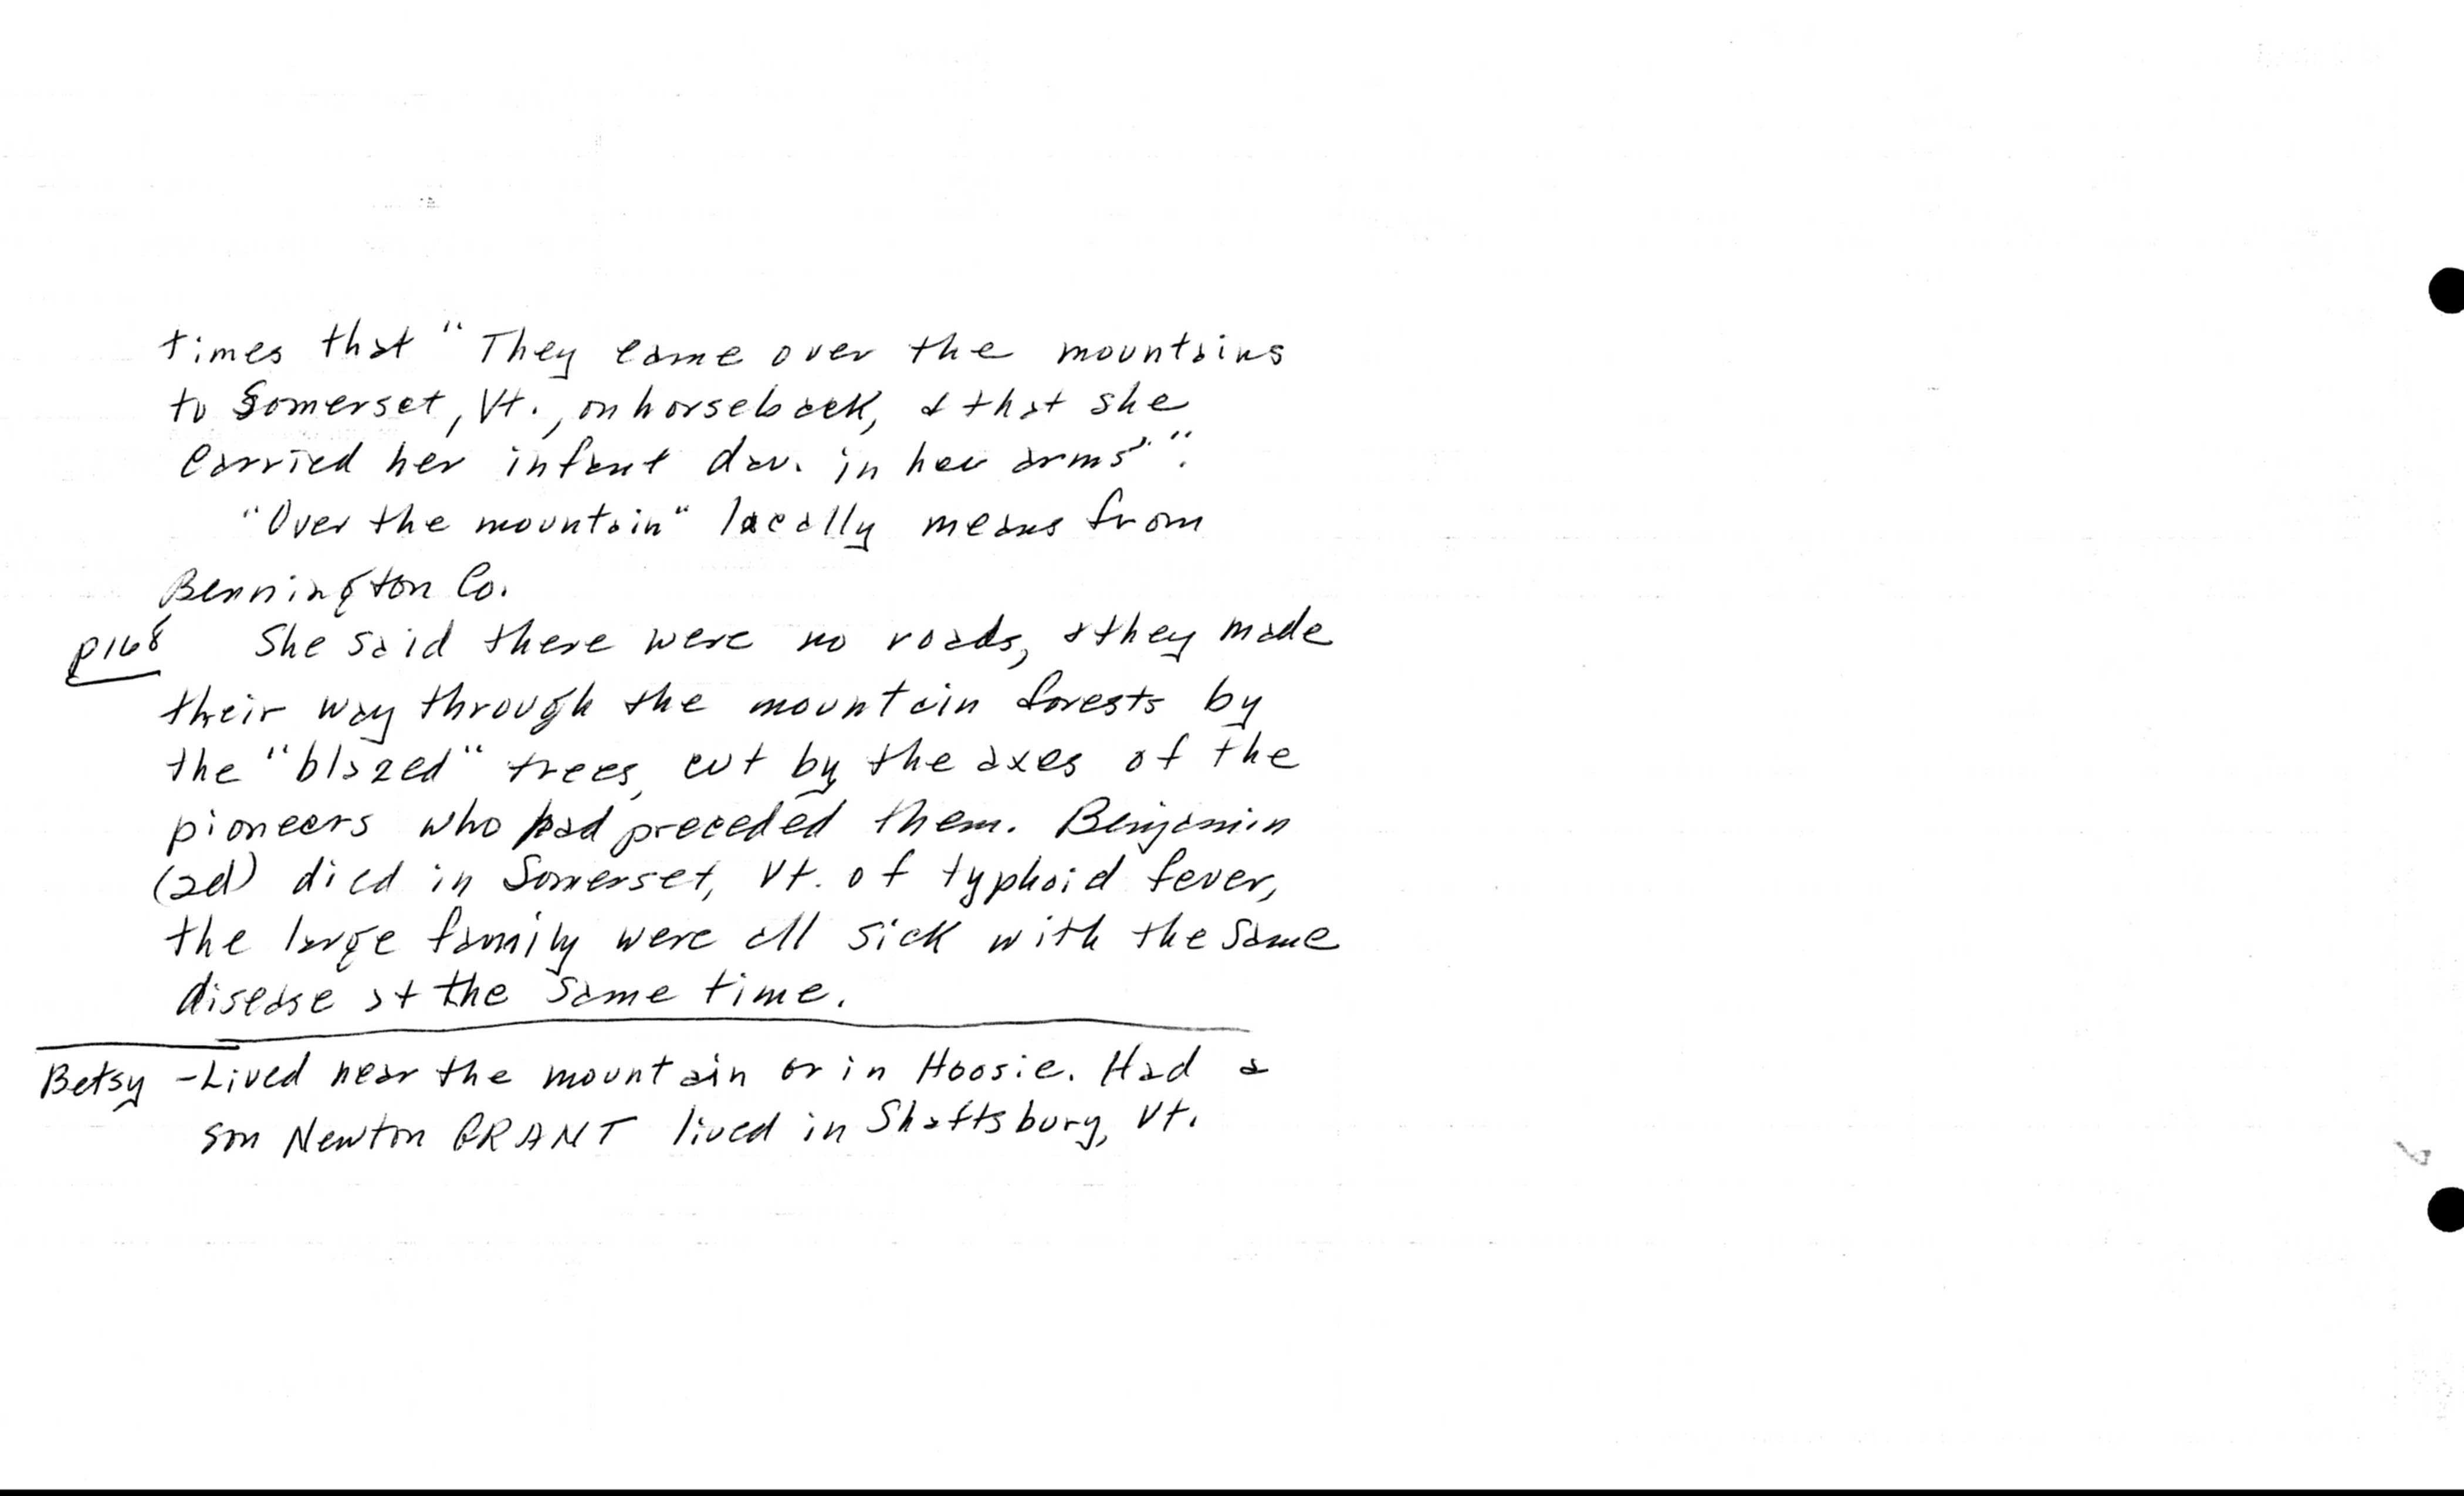 times that "They came over the mountains
to Somerset, Vt., on horseback, & that she
carried her infant dau. in her arms"".
"Over the mountain" locally means from
Bennington Co.
p168 She said there were no roads, & they made
their way through the mountain forests by
the "blazed" trees, cut by the axes of the
pioneers who had preceded them. Benjamin
(2d) died in Somerset, Vt. of typhoid fever,
the large family were all sick with the same
disease at the same time.
Betsy - Lived near the mountain or in Hoosic. Had a
son Newton GRANT lived in Shaftsbury, Vt.